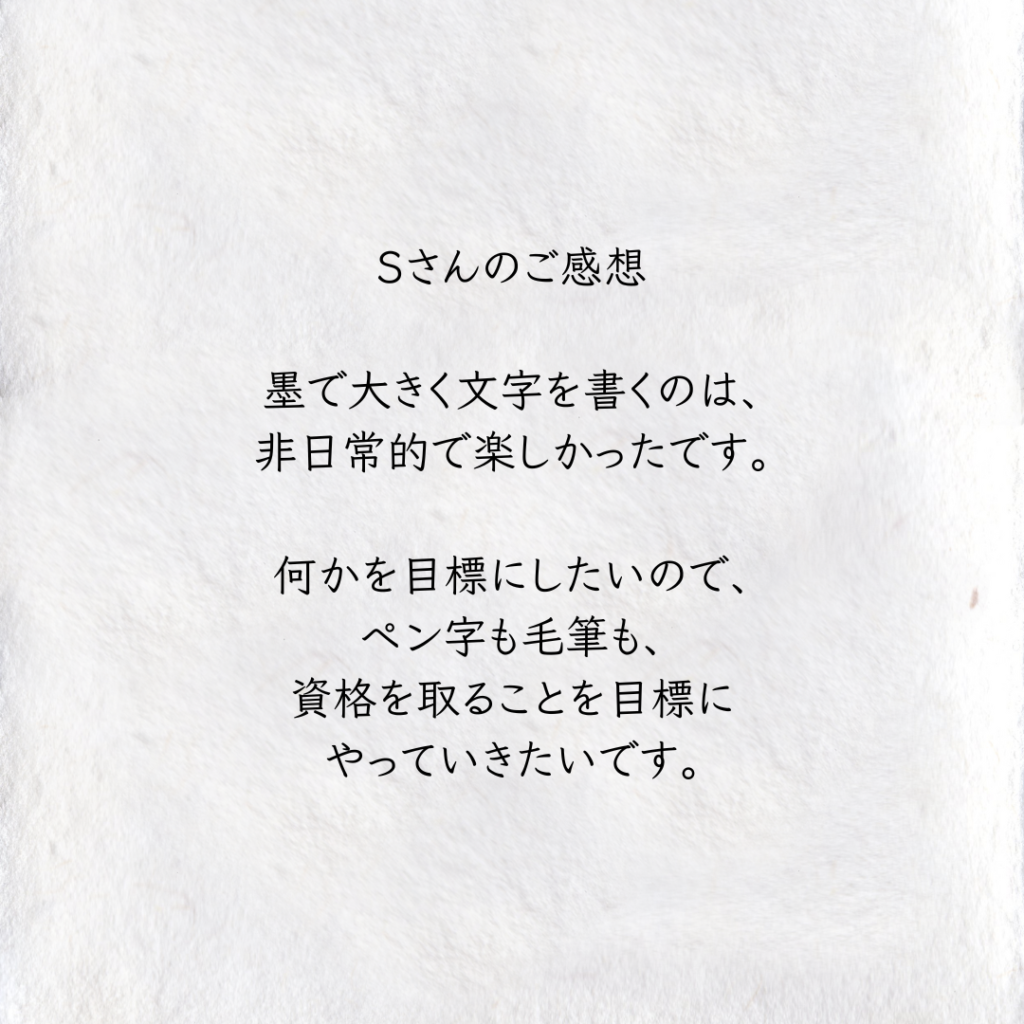 Sさんのご感想
墨で大きく文字を書くのは、
非日常的で楽しかったです。
何かを目標にしたいので、
ペン字も毛筆も、
資格を取ることを目標に
やっていきたいです。